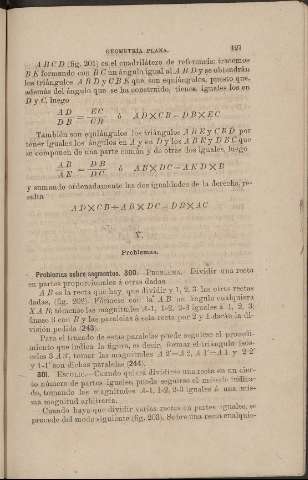 GEOMETRÍA PLANA.
A B C D (fig. 201) es el cuadrilátero de referencia; tracemos
B E formando con B C un ángulo igual al A B D y se obtendrán
los triángulos A B D y C B E que son equiángulos, puesto que,
además del ángulo que se ha construido, tienen iguales los en
D y C, luego
A D / D B = E C / C B ó A D × C B = D B × E C
También son equiángulos los triángulos A B E y C B D por
tener iguales los ángulos en A y en D y los A B E y D B C que
se componen de una parte común y de otra dos iguales, luego
A B / A E = D B / D C ó A B × D C = A E × D B
y sumando ordenadamente las dos igualdades de la derecha, re-
sulta
A D × C B + A B × D C = D B × A C
V.
Problemas.
Problemas sobre segmentos. 300. PROBLEMA.—Dividir una recta
en partes proporcionales á otras dadas.
A B es la recta que hay que dividir y 1, 2, 3 las otras rectas
dadas, (fig. 202). Fórmese con la A B un ángulo cualquiera
X A B, tómense las magnitudes A-1, 1-2, 2-3 iguales á 1, 2, 3,
únase 3 con B y las paralelas á esta recta por 2 y 1 darán la di-
visión pedida (243).
Para el trazado de estas paralelas puede seguirse el procedi-
miento que indica la figura, es decir, formar el triángulo isós-
celes 3 A 3', tomar las magnitudes A 2'=A 2, A 1'=A 1 y 2-2'
y 1-1' son dichas paralelas (244).
301. ESCOLIO.—Cuando quiera dividirse una recta en un cier-
to número de partes iguales, puede seguirse el método indica-
do, tomando las magnitudes A-1, 1-2, 2-3 iguales á una mis-
ma magnitud arbitraria.
Cuando haya que dividir varias rectas en partes iguales, se
procede del modo siguiente (fig. 203). Sobre una recta cualquie-